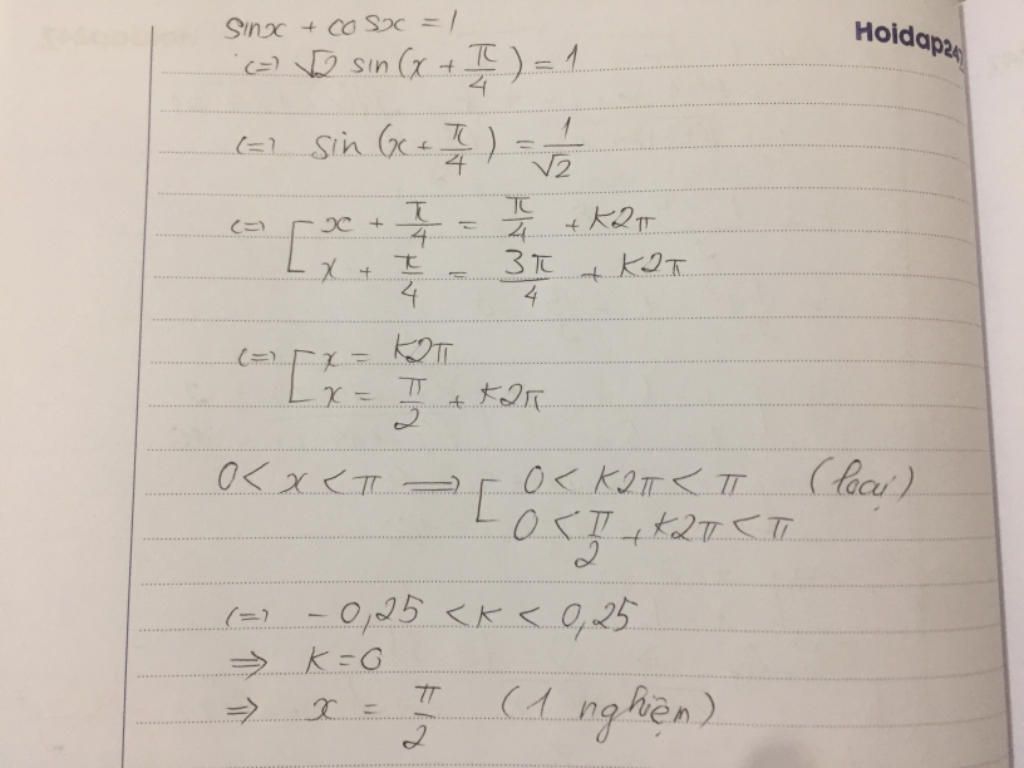 sinx + cosx = 1
Hoidap247
(=) √2 sin(x + π/4) = 1
(=) sin(x + π/4) = 1/√2
(=) [ x + π/4 = π/4 + K2π
x + π/4 = 3π/4 + K2π
(=) [ x = K2π
x = π/2 + K2π
0 < x < π ⟹ [ 0 < K2π < π (loại)
0 < π/2 + K2π < π
(=) -0,25 < K < 0,25
⇒ K = 0
⇒ x = π/2 (1 nghiệm)